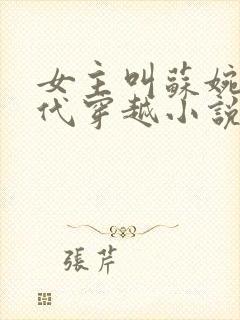 女主叫蘇婉
代穿越小說
張芹